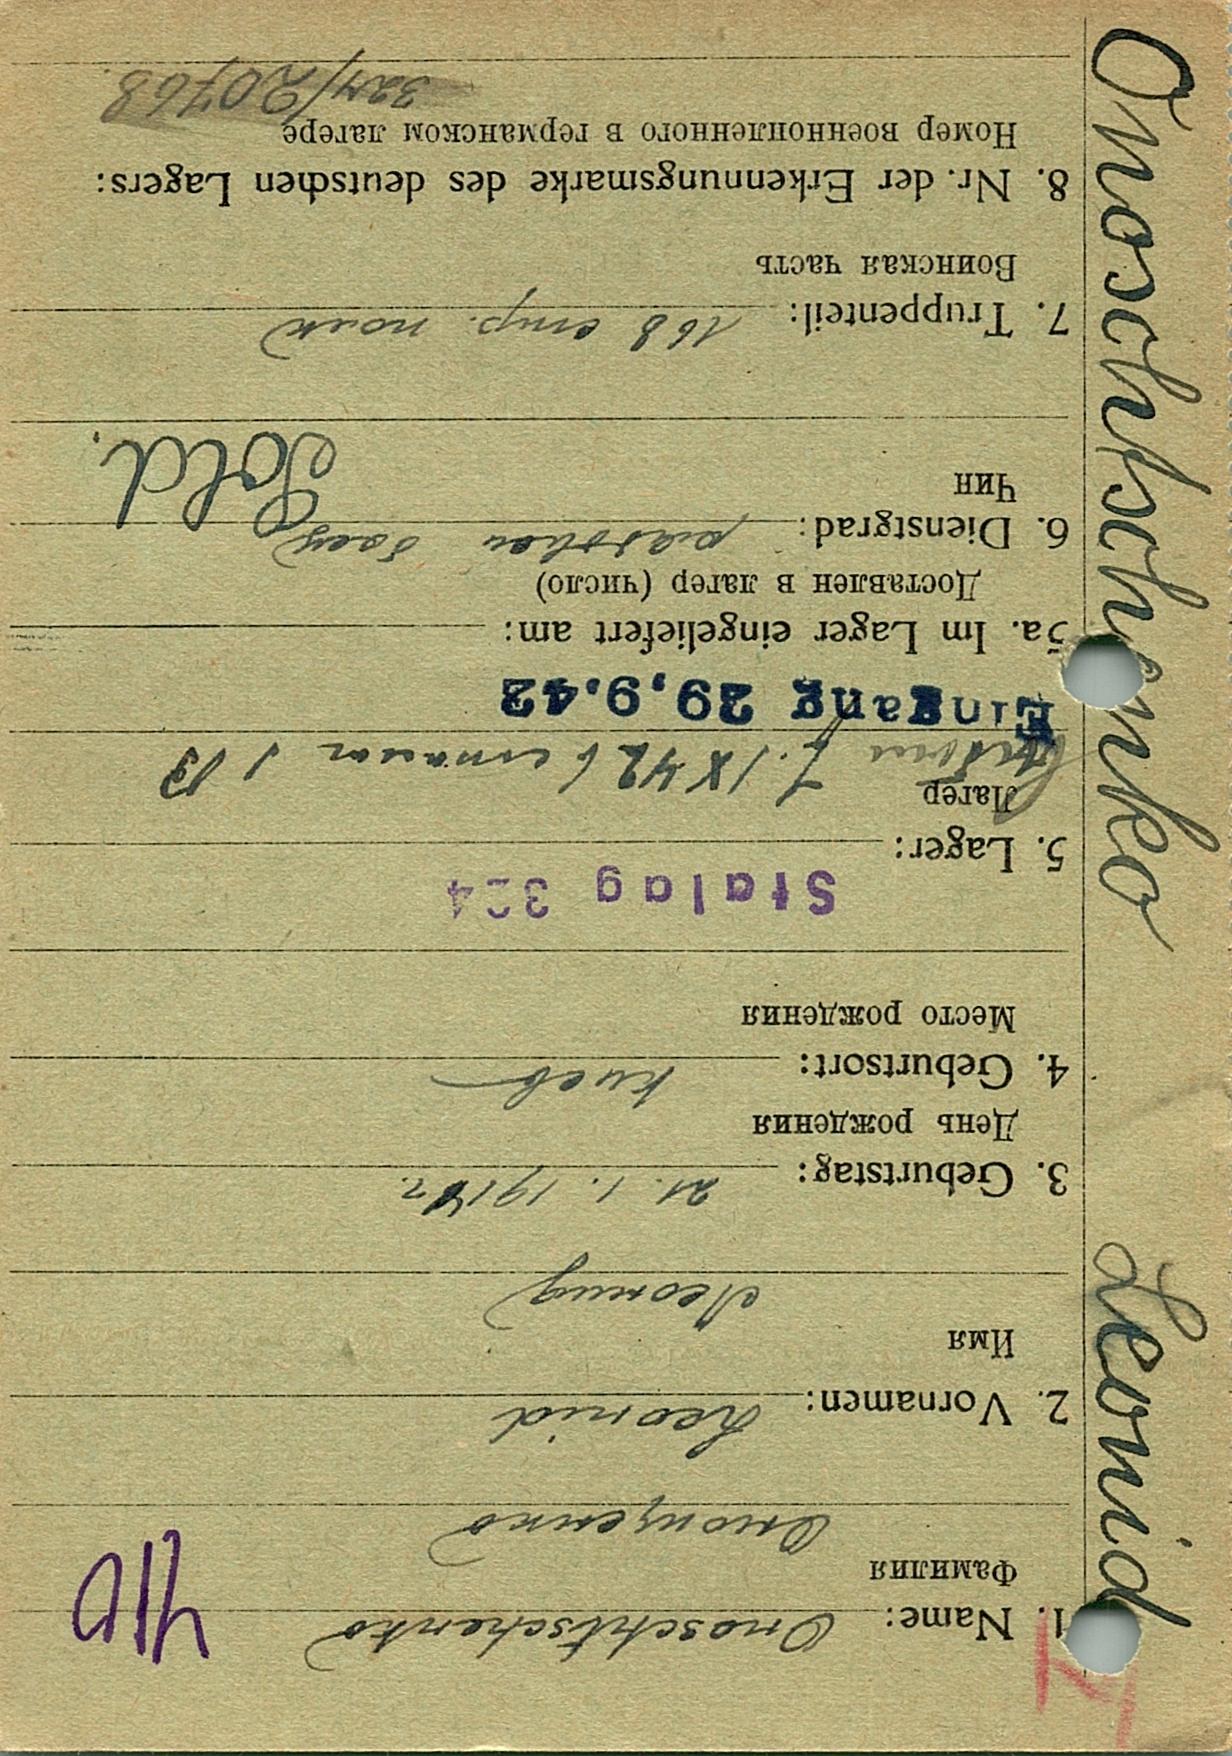 Onoschtschenko Leonid
1. Name: Onoschtschenko
Фамилия
Онощенко
2. Vornamen: Leonid
Имя
Леонид
3. Geburtstag: 21. 1. 1914 г.
День рождения
4. Geburtsort: Киев
Место рождения
Stalag 324
5. Lager:
Лагер
7. IX 42
Eingang 29.9.42
5a. Im Lager eingeliefert am:
Доставлен в лагер (число)
6. Dienstgrad: рядовой боец
Чин
Sold.
7. Truppenteil: 168 стр. полк
Воинская часть
8. Nr. der Erkennungsmarke des deutschen Lagers:
Номер военнопленного в германском лагере
324/20768